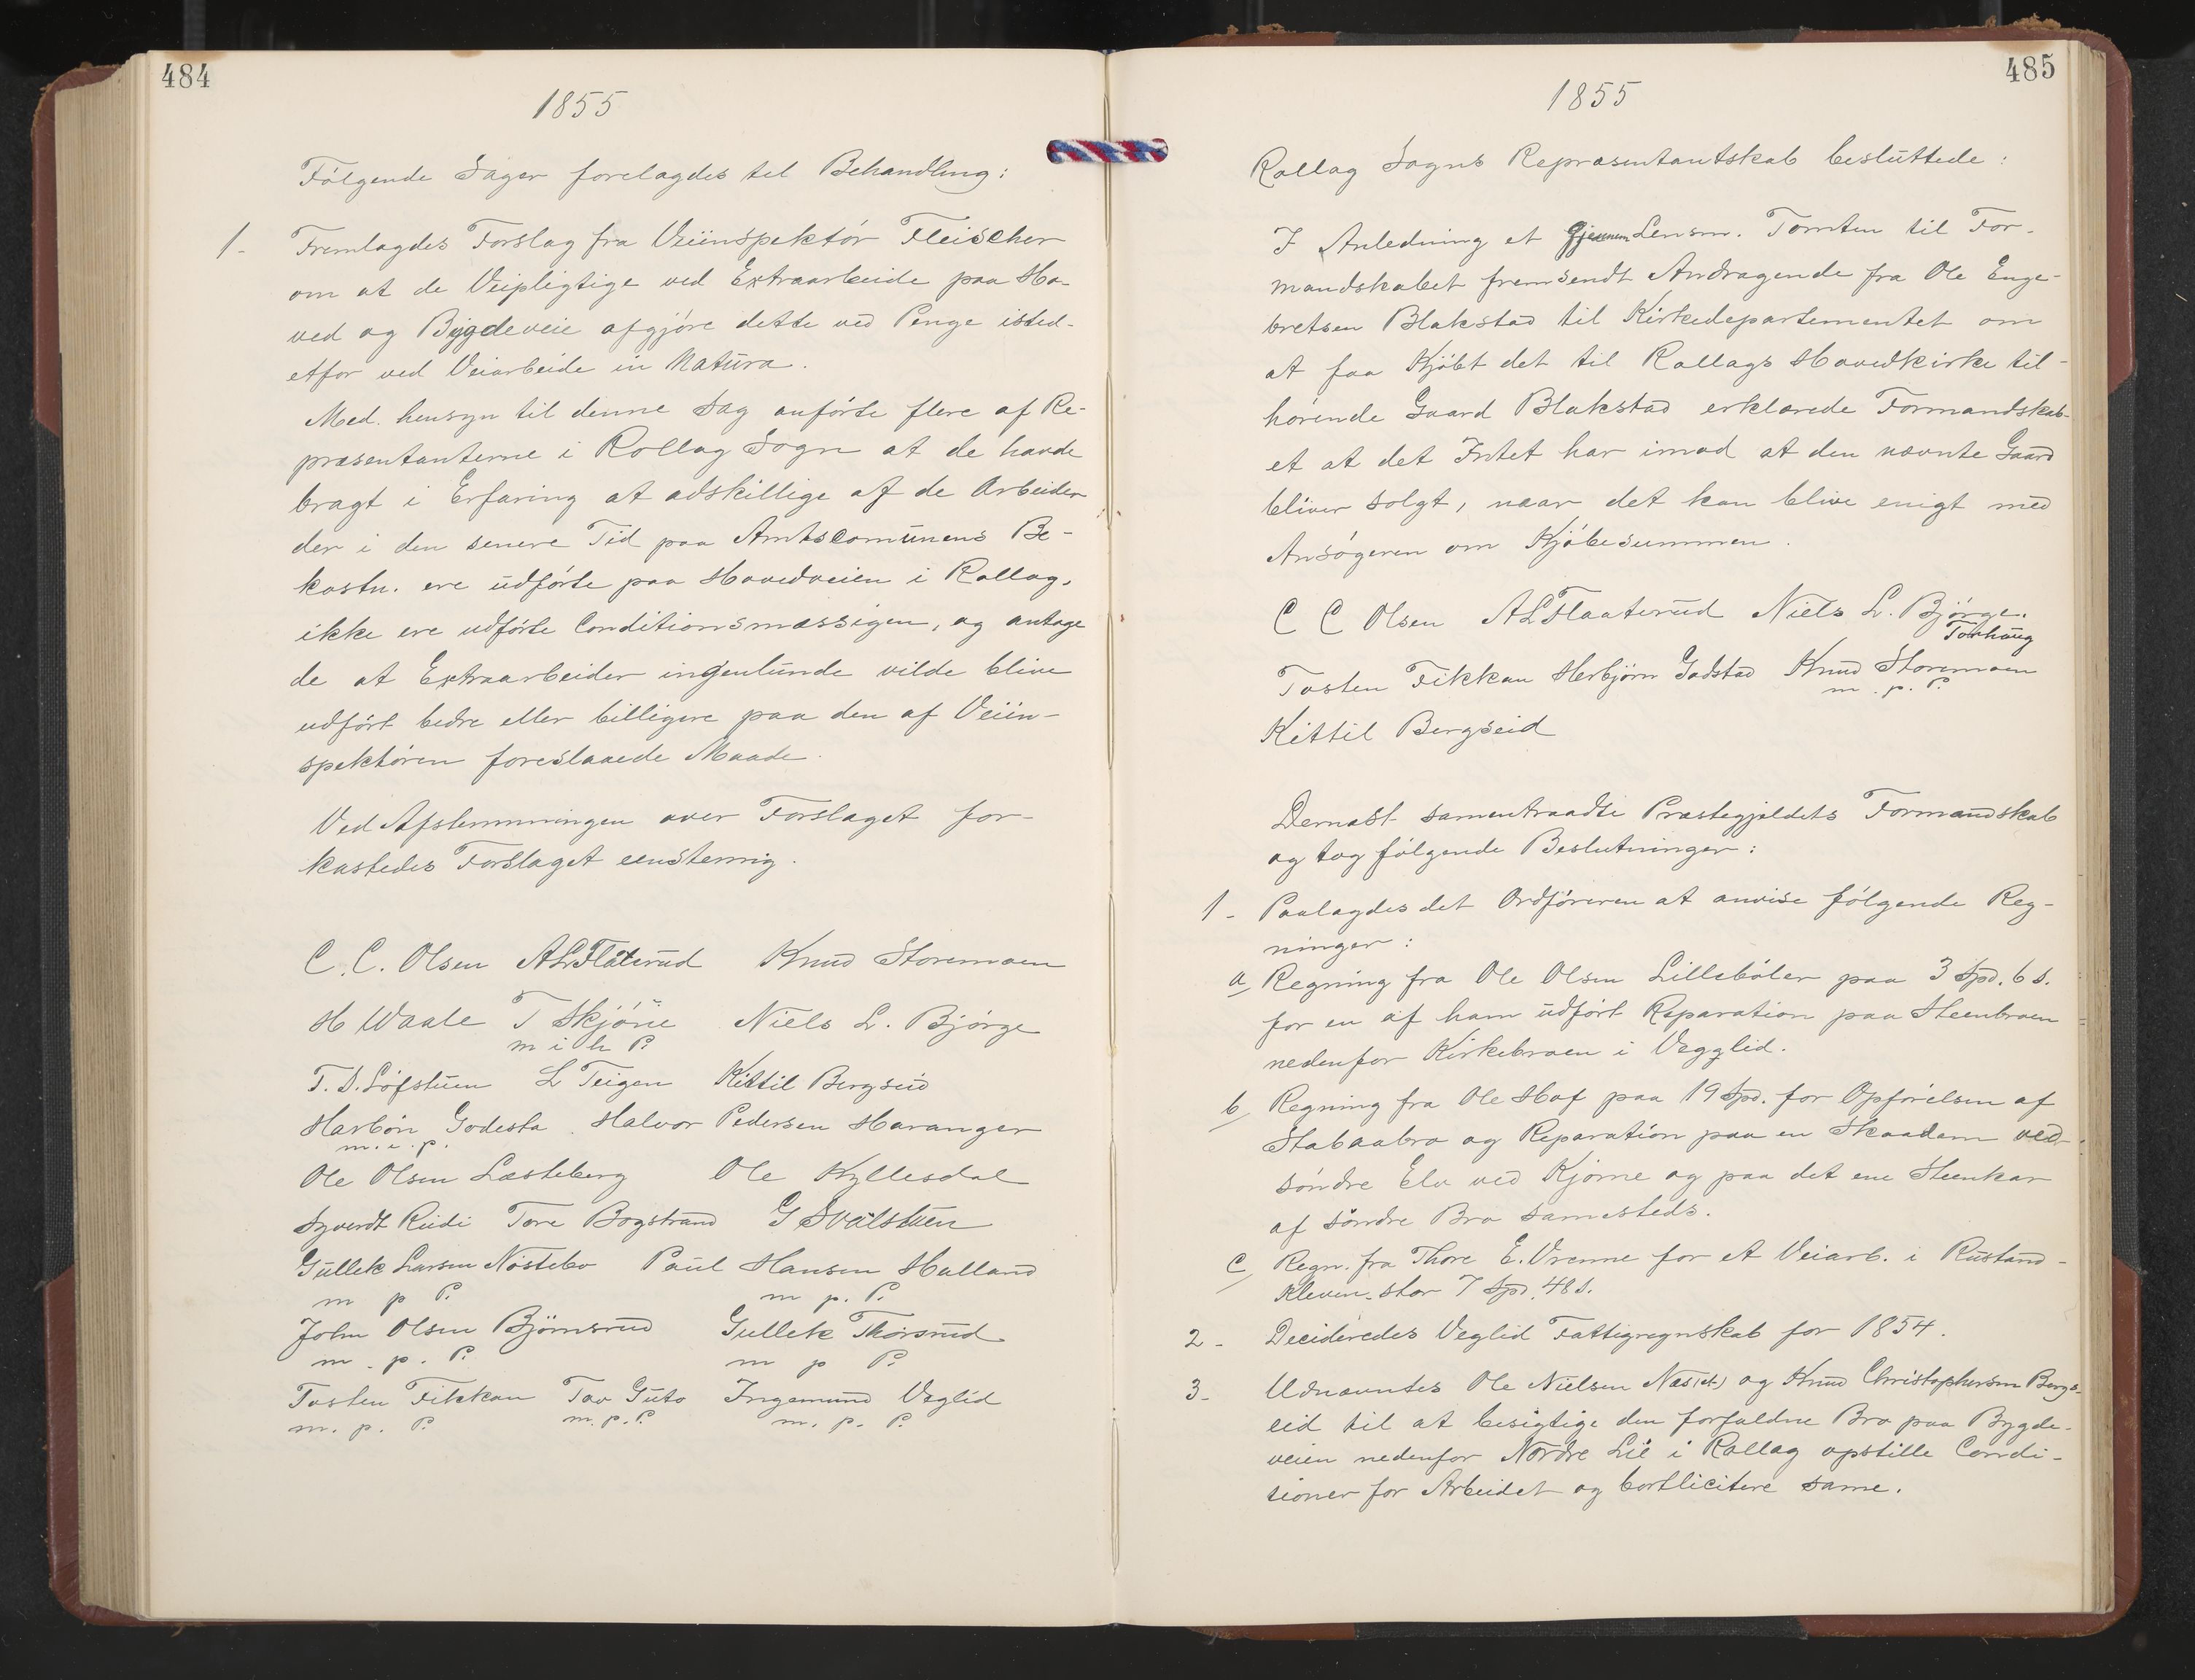 484
1855
Følgende Sager forelagdes til Behandling:
1- Fremlagdes Forslag fra Veiinspektør Fleischer
om at de Veipligtige ved Extraarbeide paa Ho-
ved og Bygdeveie afgjøre dette ved Penge isted-
etfor ved Veiarbeide in Natura.
Med. hensyn til denne Sag anførte flere af Re-
præsentanterne i Rollag Sogn at de havde
bragt i Erfaring at adskillige af de Arbeider
der i den senere Tid paa Amtscomunens Be-
kostn. ere udførte paa Hovedveien i Rollag,
ikke ere udførte Conditionsmæssigen, og antage
de at Extraarbeider ingenlunde vilde blive
udført bedre eller billigere paa den af Veiin-
spektøren foreslaaede Maade.
Ved Afstemmningen over Forslaget for-
kastedes Forslaget eenstemig.
C. C. Olsen ALFlåterud Knud Storemoen
H Waale T Skjøne Niels L. Bjørge
m i h P.
T. D. Løfstuen L Teigen Kittil Bergseid
Harbøn Godesta. Halvor Pedersen Haranger
m. i. p.
Ole Olsen Læsteberg Ole Kyllesdal
Syverdt Rudi Tore Bogstrand G Svalstuen
Gullek Larsen Nøstebo Paul Hansen Halland
m p P. m p. P.
John Olsen Bjørnsrud Gullek Thorsrud
m. p. P. m p P.
Tosten Fikkan Tov Guto Ingemund Veglid
m. p. P. m. p. P. m. p. P.
485
1855
Rollag Sogns Repræsentantskab besluttede:
I Anledning et gjennem Lensm. Tomten til For-
mandskabet fremsendt Andragende fra Ole Enge-
bretsen Blakstad til Kirkedepartementet om
at faa Kjøbt det til Rollags Hovedkirke til-
hørende Gaard Blakstad erklærede Formandskab-
et at det Intet har imod at den nævnte Gaard
bliver solgt, naar det kan blive enigt med
Ansøgeren om Kjøbesummen.
C C Olsen ALFlaaterud Niels L. Bjørge.
Torhaug
Tosten Fikkan Herbjørn Godstad Knud Storemoen
m. p. P.
Kittil Bergseid
Dernæst samentraadte Præstegjeldets Formandskab
og tog følgende Beslutninger:
1- Paalagdes det Ordføreren at anvise følgende Reg-
ninger:
a/ Regning fra Ole Olsen Lillebøler paa 3 Spd. 6 s.
for en af ham udført Reparation paa Steenbroen
nedenfor Kirkebroen i Vegglid.
b/ Regning fra Ole Hof paa 19 Spd. for Opførelsen af
Stabaabro og Reparation paa en Skaadam ved
søndre Elv ved Kjørne og paa det ene Steenkar
af søndre Bro samesteds.
c/ Regn. fra Thore E. Vrenne for et Veiarb. i Rustand-
Kleven. stor 7 Spd. 48 s.
2- Decideredes Veglid Fattigregnskab for 1854.
3- Udnævntes Ole Nielsen Næs(et) og Knud Christophersen Bergs-
eid til at besigtige den forfaldne Bro paa Bygde-
veien nedenfor Nordre Lie i Rollag opstille Condi-
tioner for Arbeidet og bortlicitere same.